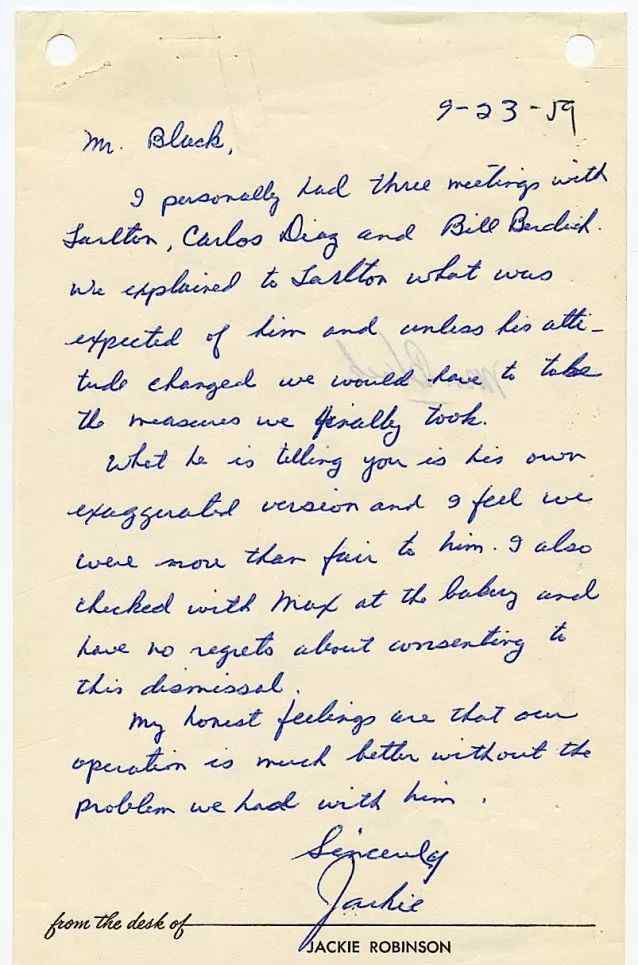 9-23-59
Mr. Black,
I personally had three meetings with
Tarlton, Carlos Diaz and Bill Berdich.
We explained to Tarlton what was
expected of him and unless his atti-
tude changed we would have to take
the measures we finally took.
What he is telling you is his own
exaggerated version and I feel we
were more than fair to him. I also
checked with Max at the bakery and
have no regrets about consenting to
this dismissal.
My honest feelings are that our
operation is much better without the
problem we had with him.
Sincerely
Jackie
from the desk of
JACKIE ROBINSON